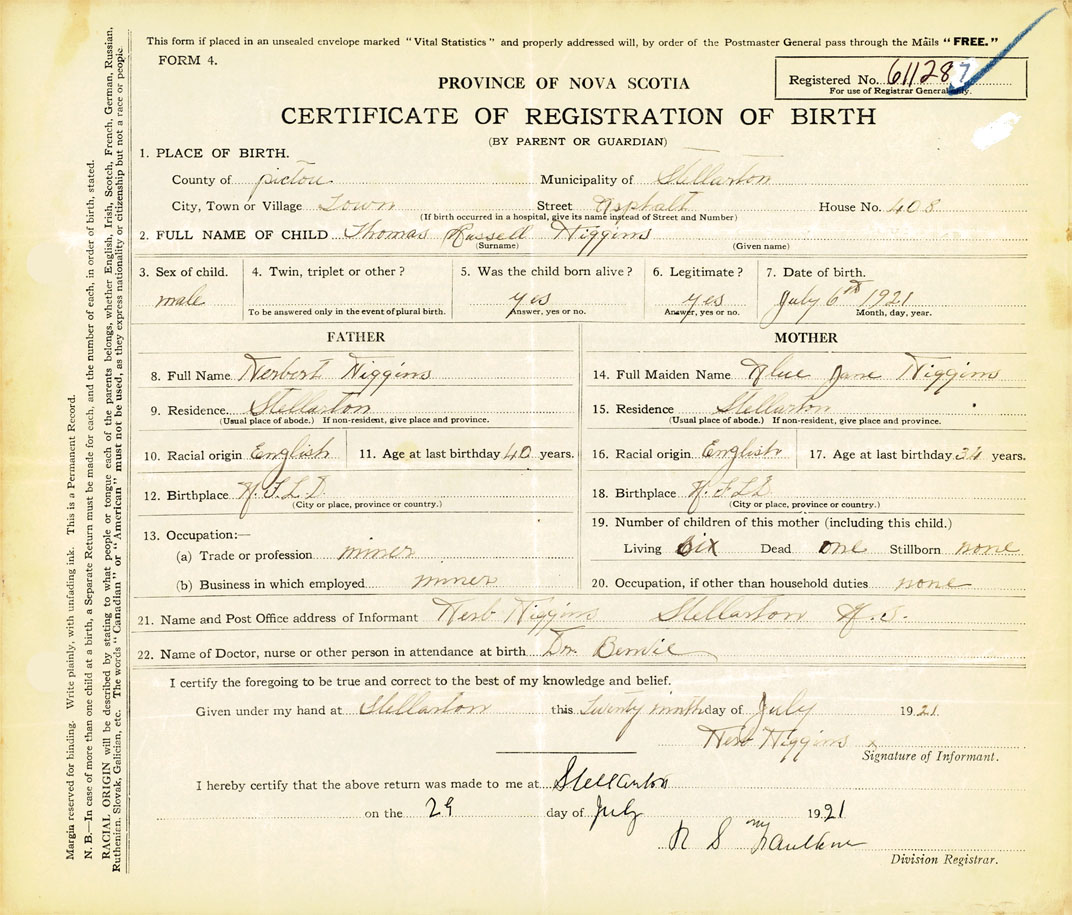 This form if placed in an unsealed envelope marked "Vital Statistics" and properly addressed will, by order of the Postmaster General pass through the Mails "FREE."
FORM 4.
Registered No. 611287
For use of Registrar General only.
PROVINCE OF NOVA SCOTIA
CERTIFICATE OF REGISTRATION OF BIRTH
(BY PARENT OR GUARDIAN)
1. PLACE OF BIRTH.
County of pictou Municipality of Stellarton
City, Town or Village Town Street Asphalt House No. 408
(If birth occurred in a hospital, give its name instead of Street and Number)
2. FULL NAME OF CHILD Thomas Russell Higgins
(Surname) (Given name)
3. Sex of child. 4. Twin, triplet or other? 5. Was the child born alive? 6. Legitimate? 7. Date of birth.
male yes yes July 6th 1921
To be answered only in the event of plural birth. Answer, yes or no. Answer, yes or no. Month, day, year.
FATHER
8. Full Name Herbert Higgins
9. Residence Stellarton
(Usual place of abode.) If non-resident, give place and province.
10. Racial origin English 11. Age at last birthday 40 years.
12. Birthplace N.F.L.D
(City or place, province or country.)
13. Occupation:—
(a) Trade or profession miner
(b) Business in which employed miner
MOTHER
14. Full Maiden Name Jane Higgins
15. Residence Stellarton
(Usual place of abode.) If non-resident, give place and province.
16. Racial origin English 17. Age at last birthday 34 years.
18. Birthplace N.F.L.D
(City or place, province or country.)
19. Number of children of this mother (including this child.)
Living six Dead one Stillborn none
20. Occupation, if other than household duties none
21. Name and Post Office address of Informant Herb Higgins Stellarton N.S.
22. Name of Doctor, nurse or other person in attendance at birth Dr.
I certify the foregoing to be true and correct to the best of my knowledge and belief.
Given under my hand at Stellarton this Twenty ninth day of July 1921
Herb Higgins x
Signature of Informant.
I hereby certify that the above return was made to me at Stellarton
on the 29 day of July 1921
R S Faulkner
Division Registrar.
Margin reserved for binding. Write plainly, with unfading ink. This is a Permanent Record.
N. B.—In case of more than one child at a birth, a Separate Return must be made for each, and the number of each, in order of birth, stated.
RACIAL ORIGIN will be described by stating to what people or tongue each of the parents belongs, whether English, Irish, Scotch, French, German, Russian,
Ruthenian, Slovak, Galician, etc. The words "Canadian" or "American" must not be used, as they express nationality or citizenship but not a race or people.